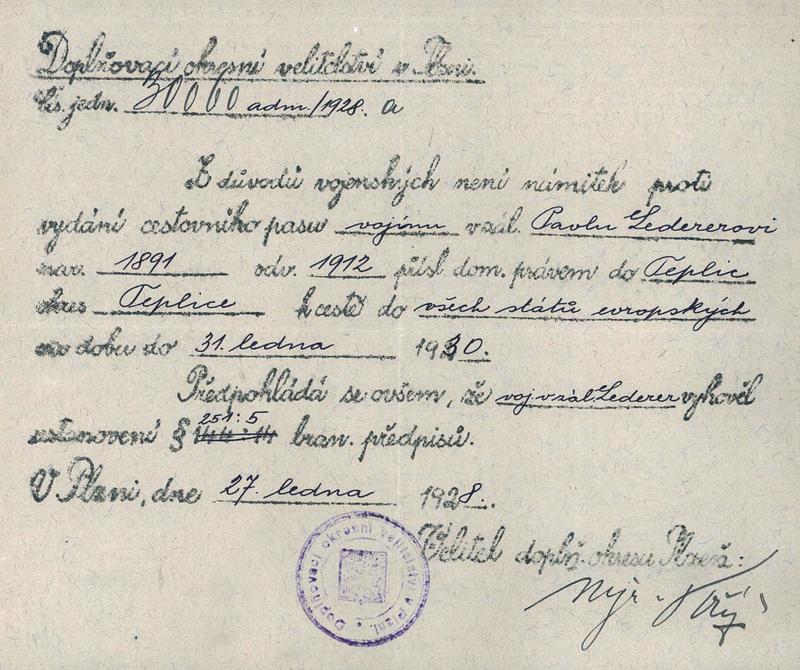 Doplňovací okresní velitelství v Plzni.
Čís. jedn. 30000 adm./1928. a
Z důvodů vojenských není námitek proti
vydání cestovního pasu vojínu v zál. Pavlu Ledererovi
nar. 1891 odv. 1912 přísl. dom. právem do Teplic
okres Teplice k cestě do všech států evropských
na dobu do 31. ledna 1930.
Předpohládá se ovšem, že voj. v zál. Lederer vyhověl
251:5
ustanovení § bran. předpisů.
V Plzni, dne 27. ledna 1928.
Velitel doplň. okresu Plzeň:
Mjr.
Doplňovací okresní velitelství v Plzni.